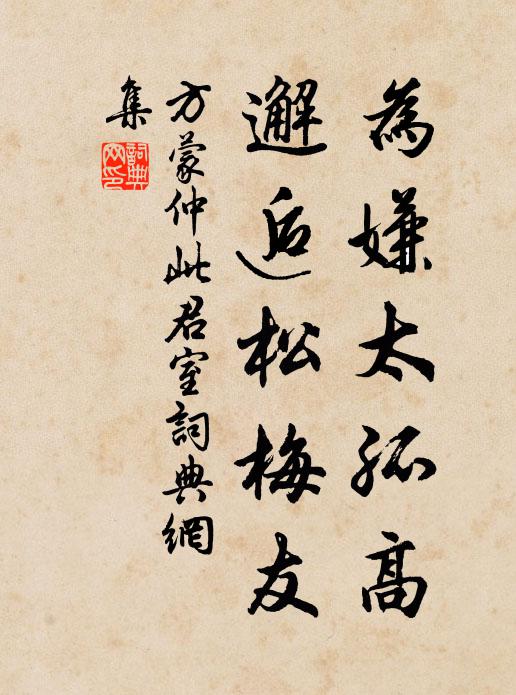 為嫌太孤高
邂逅松梅友
方蒙仲此君室詞典網
集
詞典網印